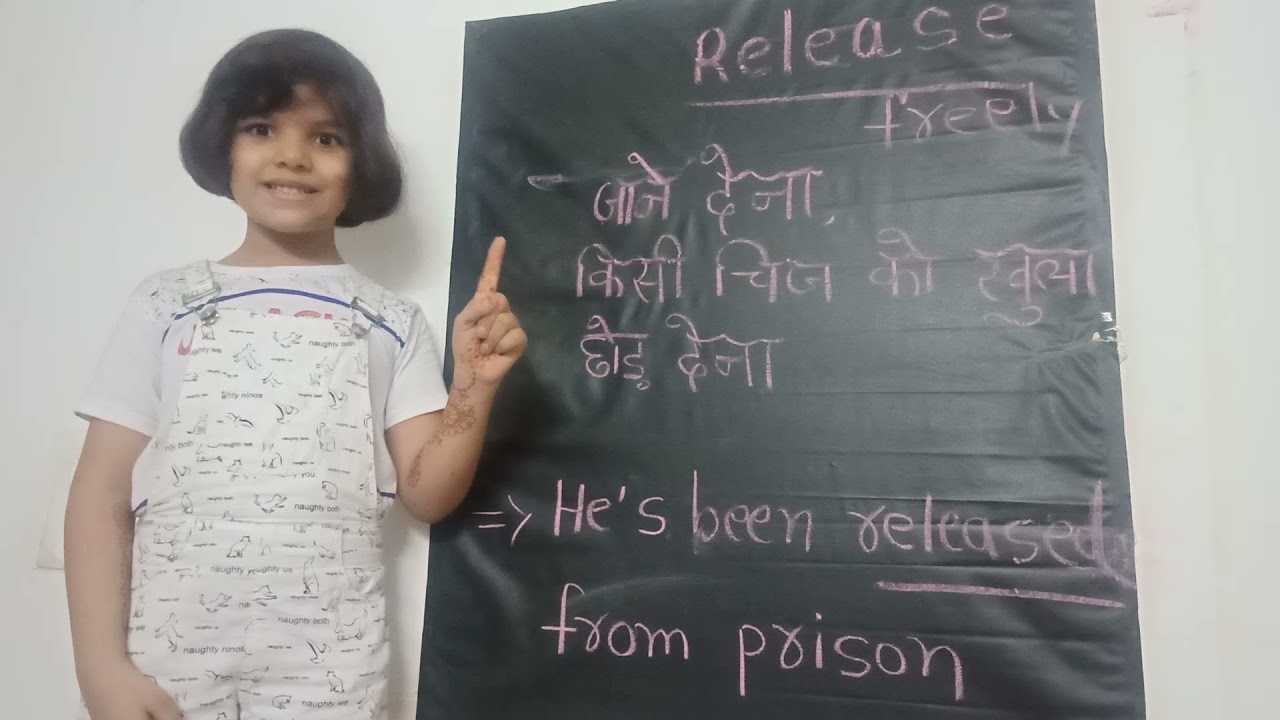 Release
freely
- जाने देना,
किसी चिज को खुला
छोड़ देना
=> He's been released
from prison
naughty both
naughty both
naughty both
naughty both